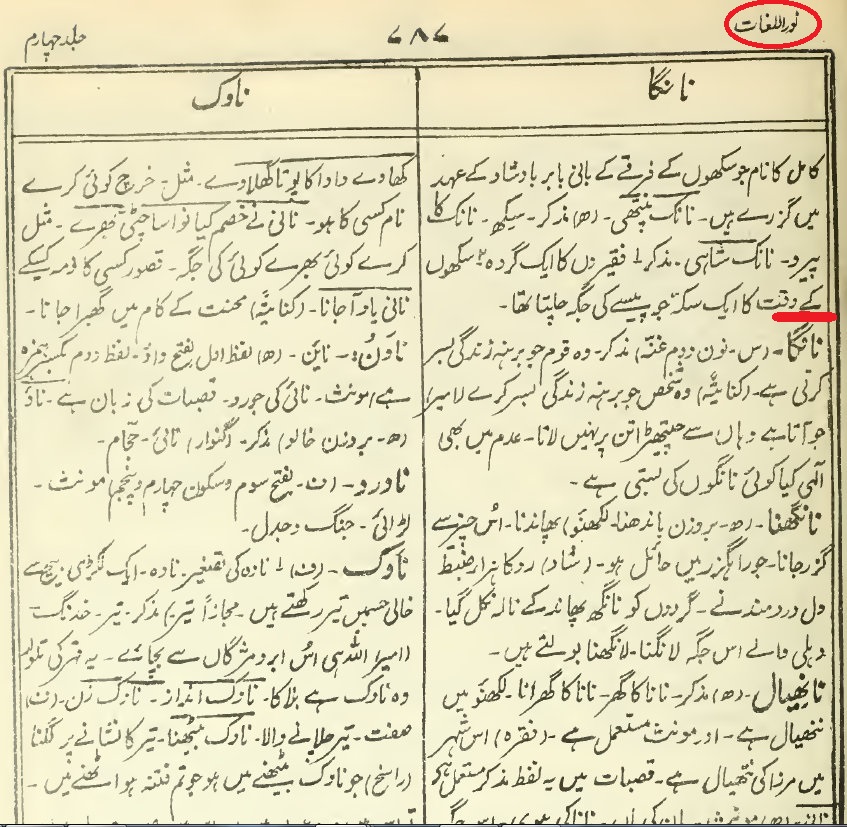 نور اللغات
۷۸۷
جلد چہارم
نانگا
ناوک
کامل کا نام جو سکھوں کے فرقے کے بانی بابر بادشاہ کے عہد
میں گزرے ہیں۔ نانک پنتھی۔ (ھ) مذکر۔ سیکھ۔ نانک کا
پیرو۔ نانک شاہی۔ مذکر ۱ فقیروں کا ایک گروہ ۲ سکھوں
کے وقت کا ایک سکّہ جو پیسے کی جگہ چلتا تھا۔
نانگا۔ (س۔ نون دوم غنّہ) مذکر۔ وہ قوم جو برہنہ زندگی بسر
کرتی ہے۔ (کنایتہً) وہ شخص جو برہنہ زندگی بسر کرے (امیر)
جو آتا ہے وہاں سے چیتھڑا تن پر نہیں لاتا۔ عدم میں بھی
الٰہی کیا کوئی نانگوں کی بستی ہے۔
نانگھنا۔ (ھ۔ بروزن باندھنا۔ لکھنؤ) پھاندنا۔ اُس چیز سے
گزر جانا۔ جو راہگزر میں حائل ہو۔ (شاد) روکا ہزار ضبط
دل دردمند نے۔ گردوں کو نانگھ پھاند کے نالہ نکل گیا۔
دہلی والے اس جگہ لانگنا۔ لانگھنا بولتے ہیں۔
نانہیال۔ (ھ) مذکر۔ نانا کا گھر۔ نانا کا گھرانا۔ لکھنؤ میں
ننھیال ہے۔ اور مونث مستعمل ہے۔ (فقرہ) اس شہر
میں مرزا کی ننھیال ہے۔ قصبات میں یہ لفظ مذکر مستعمل ہے
کھاوے دادا کا پوتا کھلاوے۔ مثل۔ خرچ کوئی کرے
نام کسی کا ہو۔ نانی نے خصم کیا نواسا چٹی بھرے۔ مثل
کرے کوئی بھرے کوئی کی جگہ۔ قصور کسی کا ذمہ کسکے
نانی یاد آ جانا۔ (کنایتہً) محنت کے کام میں گھبرا جانا۔
ناون:۔ ناین۔ (ھ) لفظ اول بفتح واؤ۔ لفظ دوم بکسر ہمزہ
ہے) مونث۔ نائی کی جورو۔ قصبات کی زبان ہے۔ ناؤ
(ھ۔ بروزن خالو) مذکر۔ (گنوار) نائی۔ حجام۔
ناورد۔ (ف۔ بفتح سوم و سکون چہارم و پنجم) مونث۔
لڑائی۔ جنگ و جدل۔
ناوک۔ (ف) ۱ ناوہ کی تصغیر۔ ناوہ۔ ایک لکڑی بیچ سے
خالی جسمیں تیر رکھتے ہیں۔ مجازاً تیر) مذکر۔ تیر۔ خدنگ۔
(امیر) اللہ ہی اُس ابرو مژگاں سے بچائے۔ یہ قہر کی تلوار
وہ ناوک ہے بلا کا۔ ناوک انداز۔ ناوک زن۔ (ف)
صفت۔ تیر چلانے والا۔ ناوک بیٹھنا۔ تیر کا نشانے پر لگنا
(راسخ) جو ناوک بیٹھنے میں ہو جو تم فتنہ ہو اٹھنے میں۔